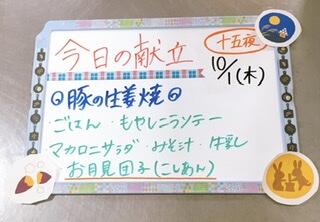 今日の献立
十五夜
10/1(木)
豚の生姜焼
・ごはん ・もやしニラソテー
マカロニサラダ ・みそ汁 ・牛乳
お月見団子(こしあん)